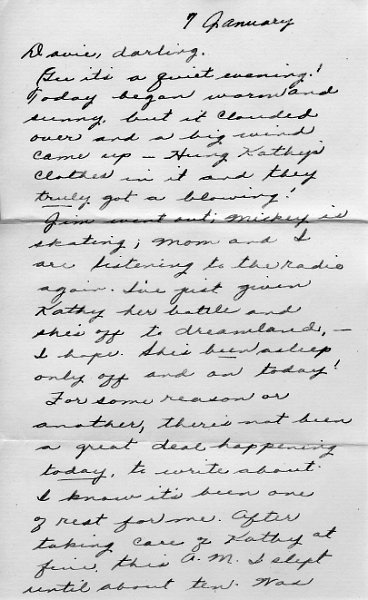 7 January
Davie, darling.
Gee it's a quiet evening!
Today began warm and
sunny, but it clouded
over and a big wind
came up – Hung Kathy's
clothes in it and they
truly got a blowing!
Jim went out; Mickey is
skating; Mom and I
are listening to the radio
again. I've just given
Kathy her bottle and
she's off to dreamland, –
I hope. She's been asleep
only off and on today!
For some reason or
another, there's not been
a great deal happening
today, to write about.
I know it's been one
of rest for me. After
taking care of Kathy at
five, this A.M. I slept
until about ten. Was